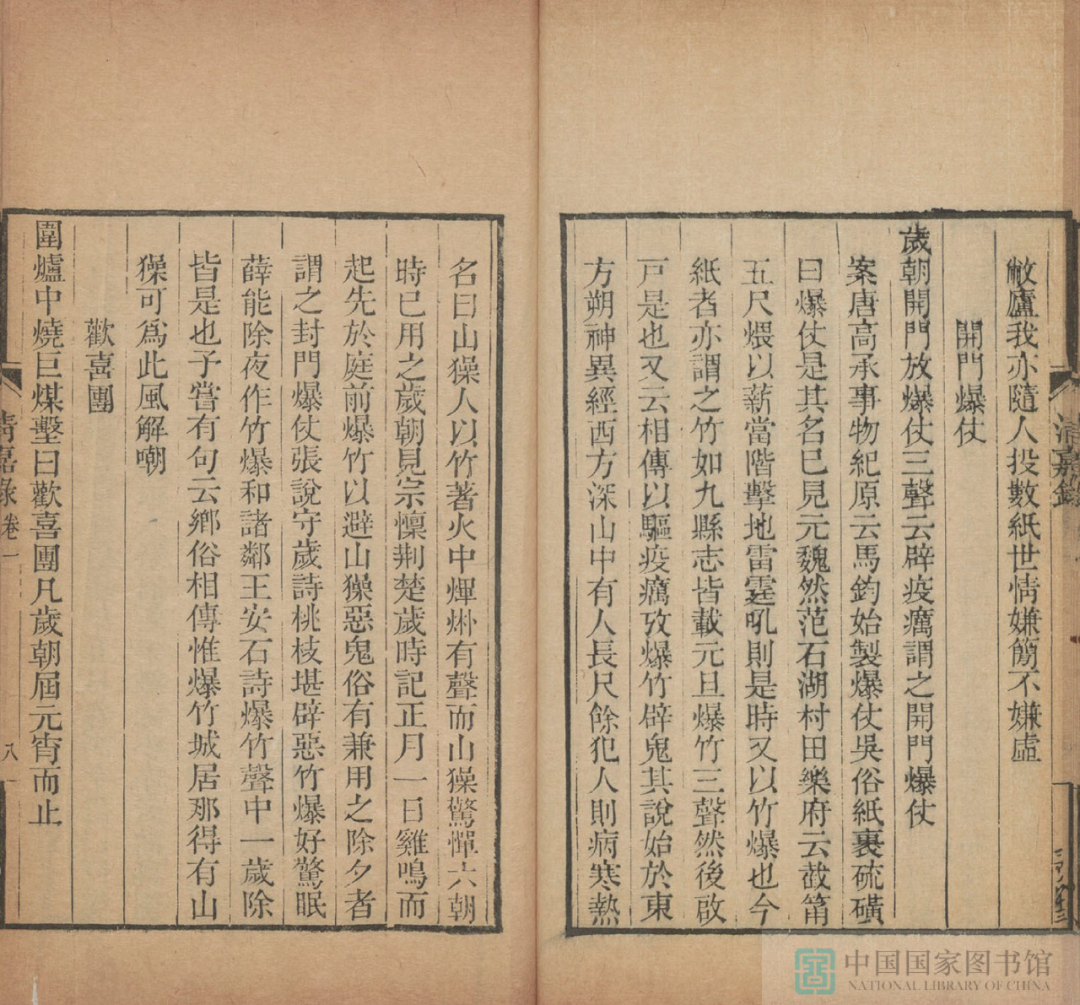 清嘉錄
敝廬我亦隨人投數紙世情嫌簡不嫌虛
開門爆仗
歲朝開門放爆仗三聲云辟疫癘謂之開門爆仗
案唐高承事物紀原云馬鈞始製爆仗吳俗紙裹硫磺
曰爆仗是其名已見元魏然范石湖村田樂府云截筩
五尺煨以薪當階擊地雷霆吼則是時又以竹爆也今
紙者亦謂之竹如九縣志皆載元旦爆竹三聲然後啟
戸是也又云相傳以驅疫癘攷爆竹辟鬼其說始於東
方朔神異經西方深山中有人長尺餘犯人則病寒熱
名曰山獋人以竹著火中熚烞有聲而山獋驚憚六朝
時已用之歲朝見宗懍荆楚歲時記正月一日雞鳴而
起先於庭前爆竹以避山獋惡鬼俗有兼用之除夕者
謂之封門爆仗張說守歲詩桃枝堪辟惡竹爆好驚眠
薛能除夜作竹爆和諸鄰王安石詩爆竹聲中一歲除
皆是也予嘗有句云鄉俗相傳惟爆竹城居那得有山
獋可爲此風解嘲
歡喜團
圍爐中燒巨煤墼曰歡喜團凡歲朝屆元宵而止
清嘉錄 卷一
八
中国国家图书馆
NATIONAL LIBRARY OF CHINA